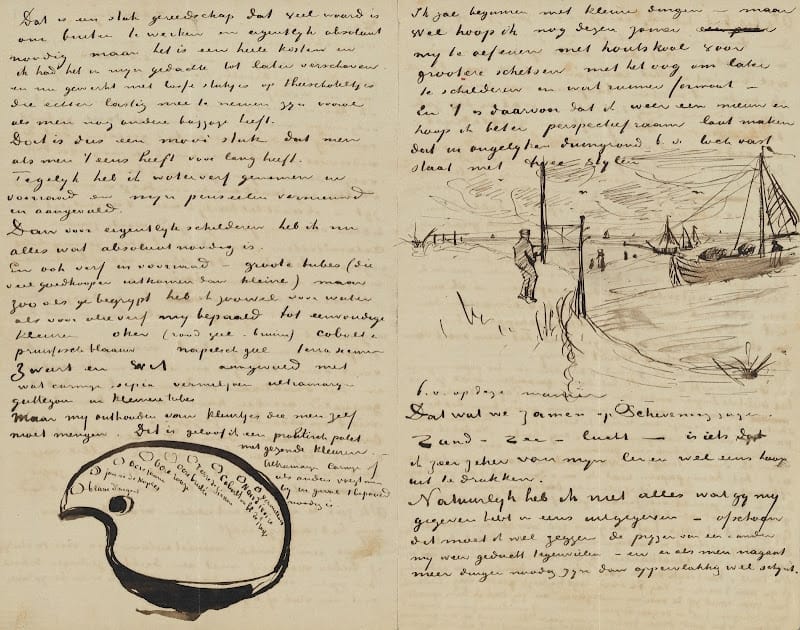 Dat is een stuk gereedschap dat veel waard is
om buiten te werken en eigentlyk absoluut
noodig maar het is een heele kosten en
ik had het in myn gedachte tot later verschoven
en nu gewerkt met losse stukjes op theeschoteltjes
die echter lastig mee te nemen zyn vooral
als men nog andere bagage heeft.
Dat is dus een mooi stuk dat men
als men 't eens heeft voor lang heeft.
Tegelyk heb ik waterverf genomen in
voorraad en myn penseelen vernieuwd
en aangevuld.
Dan voor eigentlyk schilderen heb ik nu
alles wat absoluut noodig is.
En ook verf in voorraad – groote tubes (die
veel goedkooper uitkomen dan kleine) maar
zoo als ge begrypt heb ik zoowel voor water
als voor olieverf my bepaald tot eenvoudige
kleuren oker (rood geel – bruin) cobalt &
pruissisch blaauw napelsch geel terra sienna
Zwart en wit aangevuld met
wat carmyn sepia vermiljoen ultramaryn
guttegom in kleinere tubes
Maar my onthouden van kleurtjes die men zelf
moet mengen. Dit is geloof ik een praktisch palet
met gezonde kleuren –
ultramaryn carmyn of
als anders voegt men
by in geval 't bepaald
noodig is
blanc d'argent
jaune de Naples
ocre jaune
ocre rouge
ocre brune
terre de sienne
cobalt
Noir
vermillon
Ik zal beginnen met kleine dingen – maar
wel hoop ik nog dezen zomer
my te oefenen met houtskool voor
grootere schetsen met het oog om later
te schilderen in wat ruimer formaat –
En 't is daarvoor dat ik weer een nieuw en
hoop ik beter perspectiefraam laat maken
dat in ongelyken duingrond b.v. toch vast
staat met twee stylen
b.v. op deze manier
Dat wat we zamen op Scheveningen zagen.
Zand – Zee – lucht – is iets dat
ik zeer zeker van myn leven wel eens hoop
uit te drukken.
Natuurlyk heb ik niet alles wat gy my
gegeven hebt in eens uitgegeven – ofschoon
dit moet ik wel zeggen de pryzen van een & ander
my weer geducht tegenvielen – en er als men nagaat
meer dingen noodig zyn dan oppervlakkig wel schynt.